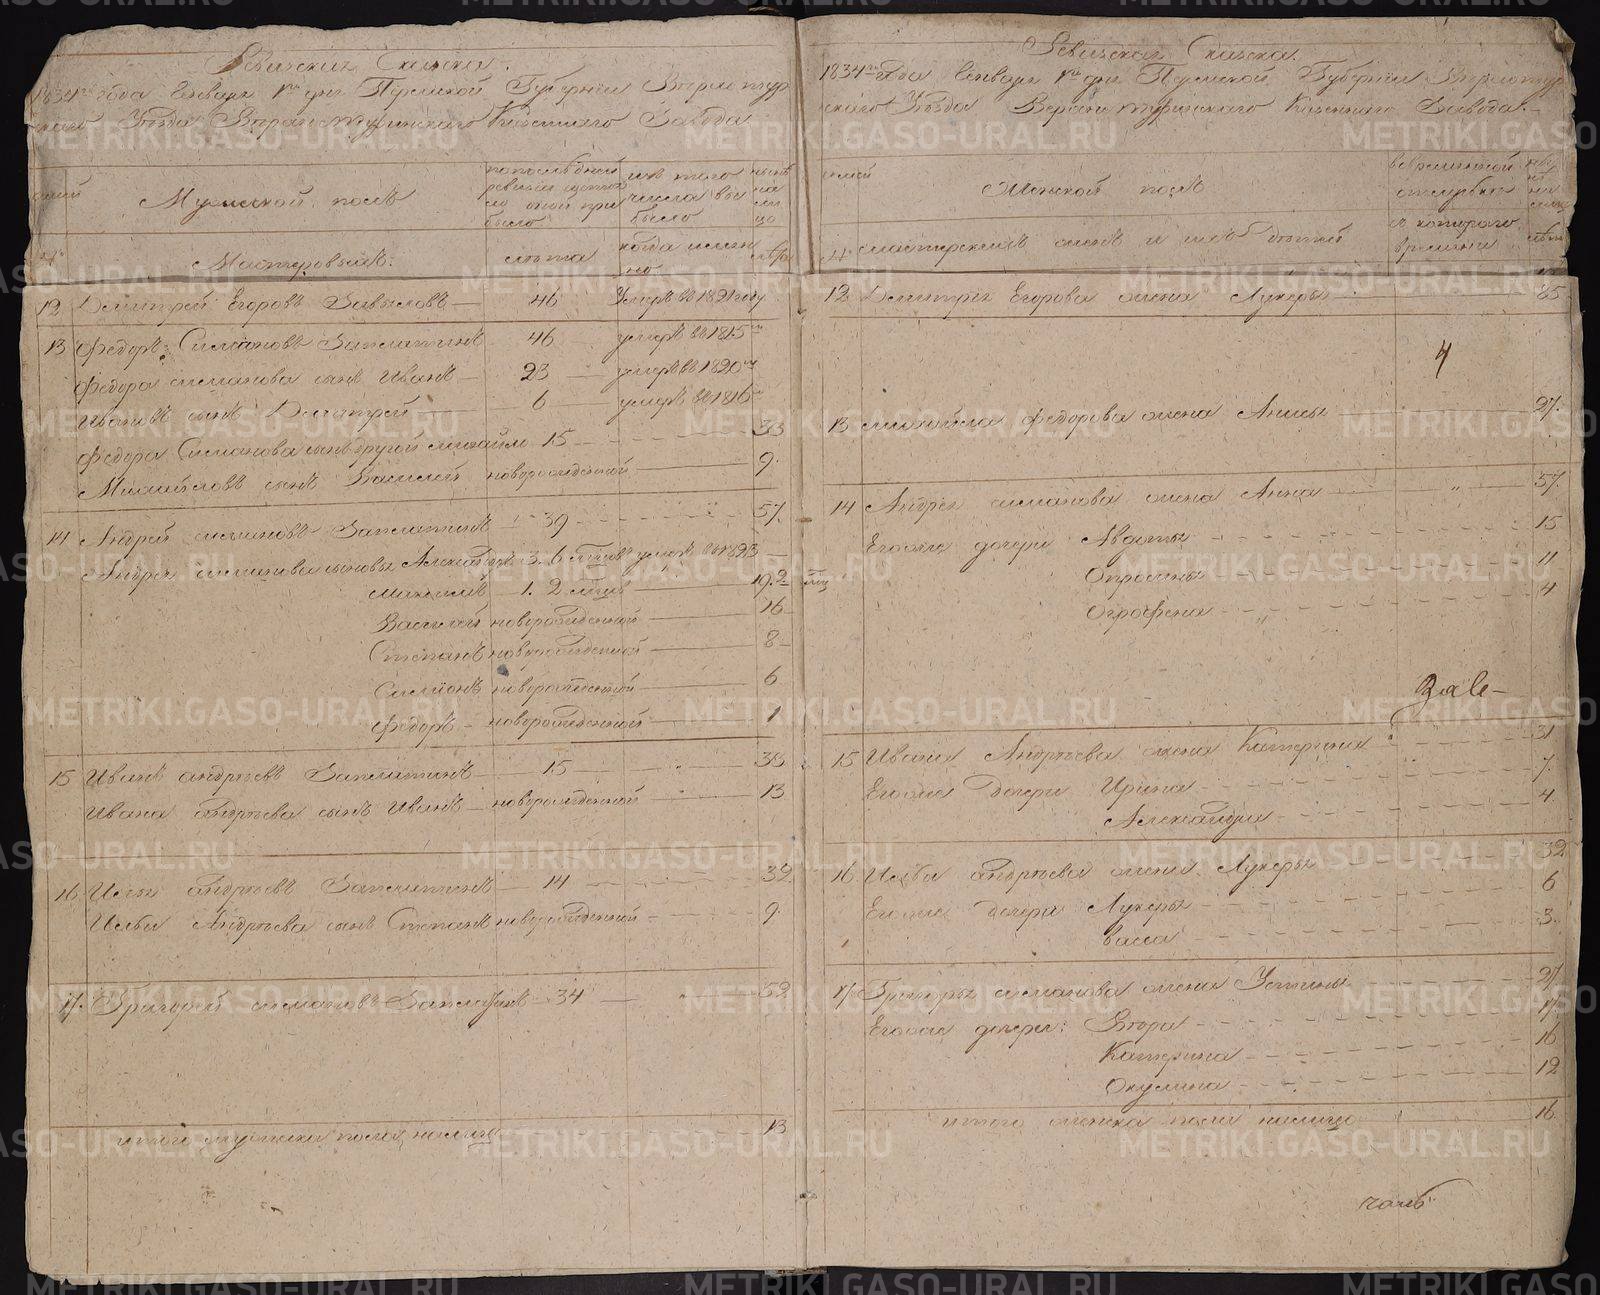 Ревизская Сказка.
1834го года Генваря 1го дня Пермской Губернии Верхотур
скаго Уезда Верхотуринскаго Казеннаго Завода
семей
Мужеской полъ
по последней
ревизии состоя
ло и после оной при
было
изъ того
числа вы
было
ныне
на
ли
цо
№
Мастеровыхъ:
лета
когда имен
но
лета
12 Дмитрей Егоровъ Завьяловъ — 46 Умеръ въ 1821 году
13 Федоръ Симановъ Заплатинъ 46 умеръ въ 1815мъ
Федора симанова сынъ Иванъ — 23 — умеръ въ 1820мъ
Ивановъ сынъ Дмитрей 6 — умеръ въ 1816
Федора Симанова сынъ другой михайло 15 33
Михайловъ сынъ Василей новорожденной 9.
14 Андрей симановъ Заплатинъ 39 57.
Андрея симанова сыновья Александръ 3. 6 мцовъ умеръ въ 1823 —
Максимъ 1. 2 мцовъ 19. 2 мцо
Василей новорожденной 16
Степанъ новорожденной 8
Симионъ новорожденной 6
Федоръ — новорожденной 1
15 Иванъ андреевъ Заплатинъ 15 33
Ивана андреева сынъ Иванъ — новорожденной 13
16 Илья андреевъ Заплатинъ 14 32
Ильи Андреева сынъ Степанъ новорожденной 9.
17. Григорей симановъ Заплатинъ — 34 52
итого мужеска пола налицо 13
Ревизская Сказка.
1834го года Генваря 1го дня Пермской Губернии Верхотур
скаго Уезда Верхотуринскаго Казеннаго Завода.
семей
Женской полъ
во временной
отлучке
ны
не
на
лицо
№
мастерскихъ женъ и ихъ детей
съ котораго
времени
лета
12 Дмитрея Егорова жена Лукерья 85
4
13 михайла федорова жена Анисья 27.
14 Андрея симанова жена Анна „ 57.
Егоже дочери Авдотья 15
Опросинья 11
Огрофена „ 4
Zale
15 Ивана Андреева жена Катерина 31
Егоже дочери Ирина 7.
Александра 4.
16 Ильи андреева жена Лукерья 32
Егоже дочери Лукерья 6
васса 3.
17. Григорья симанова жена Устинья 27
Егоже дочери: Втора 17
Катерина 16
Окулина 12
итого женска пола налицо 16